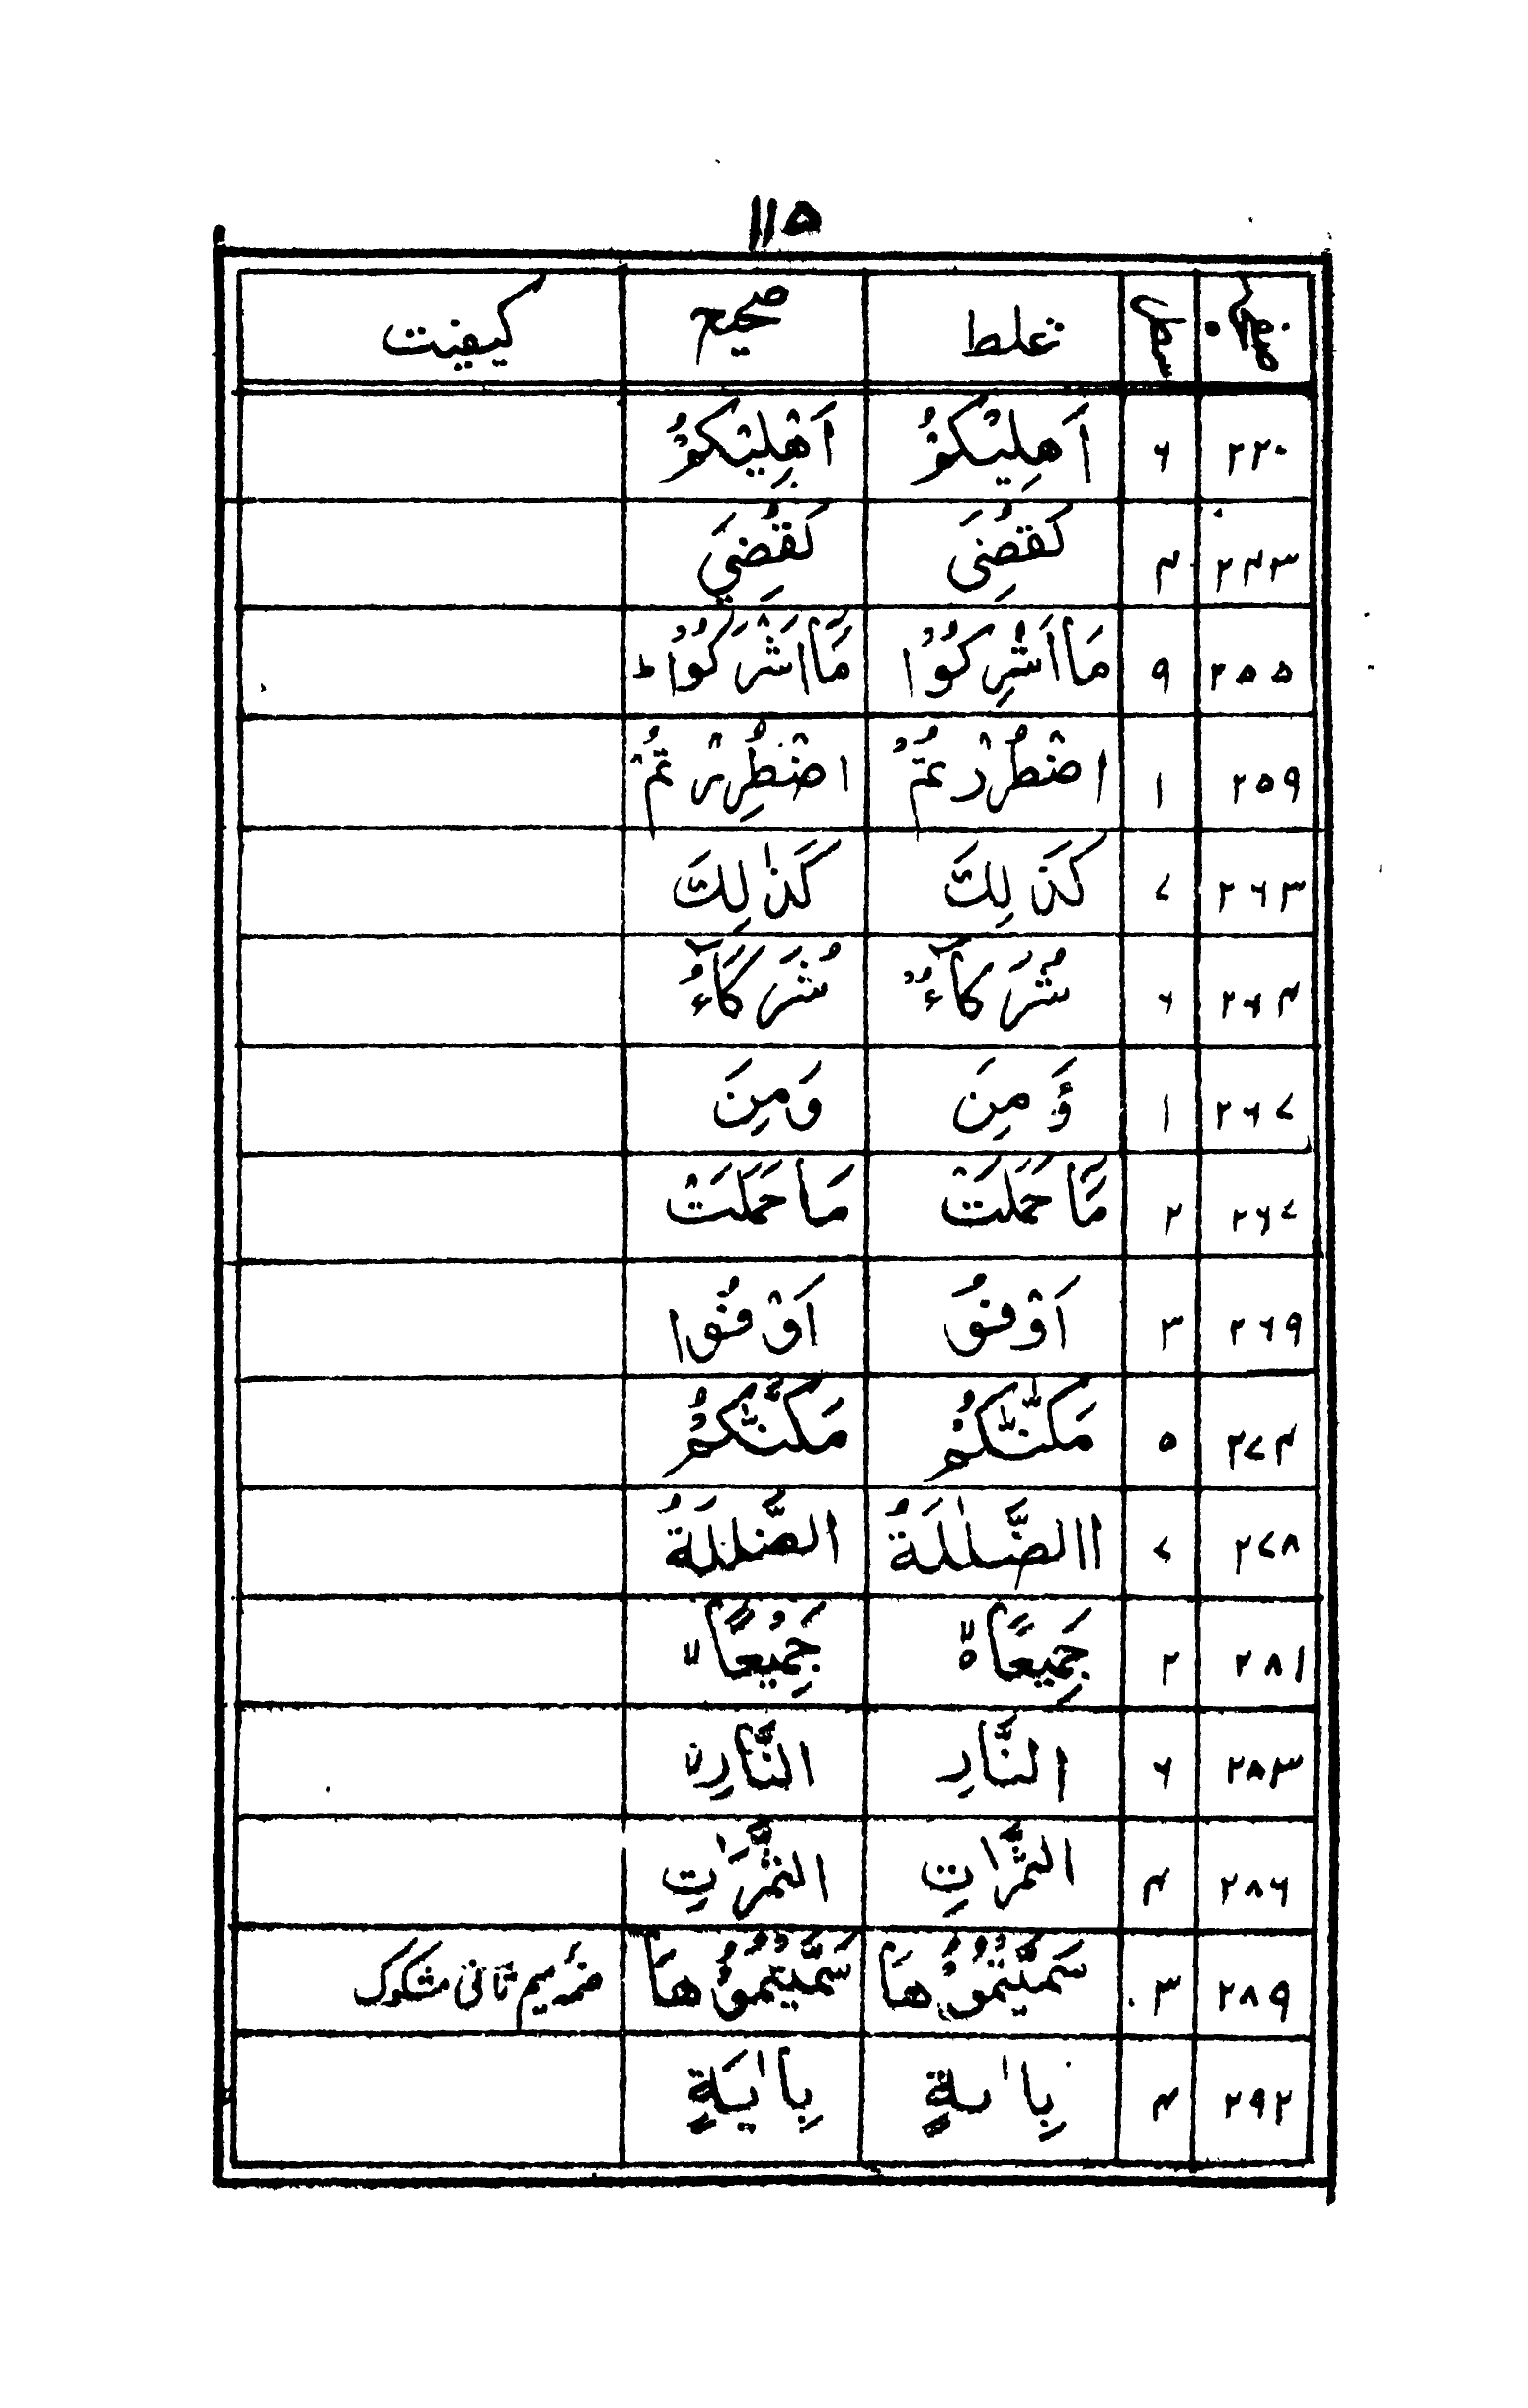 ۱۱۵
صفحہ سطر غلط صحیح کیفیت
۲۲۰ ۶ اَهلِيْكُمْ اَهْلِيْكُمْ
۲۴۳ ۴ لَقُضِىَ لَقُضِيَ
۲۵۵ ۹ مَا اَشْرِكُوْا مَا اَشْرَكُوْا ط
۲۵۹ ۱ اضْطُرْر ثُمَّ اضْطُرِرْ ثُمَّ
۲۶۳ ۷ كَذَ لِكَ كَذٰ لِكَ
۲۶۴ ۶ شُرَكَآءُ شُرَكَآءُ
۲۶۷ ۱ ؤَ مِنَ وَمِنَ
۲۶۷ ۲ مَا حَمَلَتْ مَا حَمَلَتْ
۲۶۹ ۳ اَوْفُو اَوْفُوْا
۲۷۴ ۵ مَكَّنّٰكُمْ مَكَّنّٰكُمْ
۲۷۸ ۷ االضَّلٰلَةُ الضَّلٰلَةُ
۲۸۱ ۲ جَمِيعًا ۵ لا جَمِيْعًا لا
۲۸۳ ۶ النَّارِ النَّارِ لا
۲۸۶ ۴ الثَّمَرٰتِ الثَّمَرٰتِ
۲۸۹ ۳ سَمَّيْتُمُوْهَا سَمَّيْتُمُوْهَا ضمہ میم ثانی مشکوک
۲۹۲ ۴ بِاٰ ىةٍ بِاٰ يَةٍ